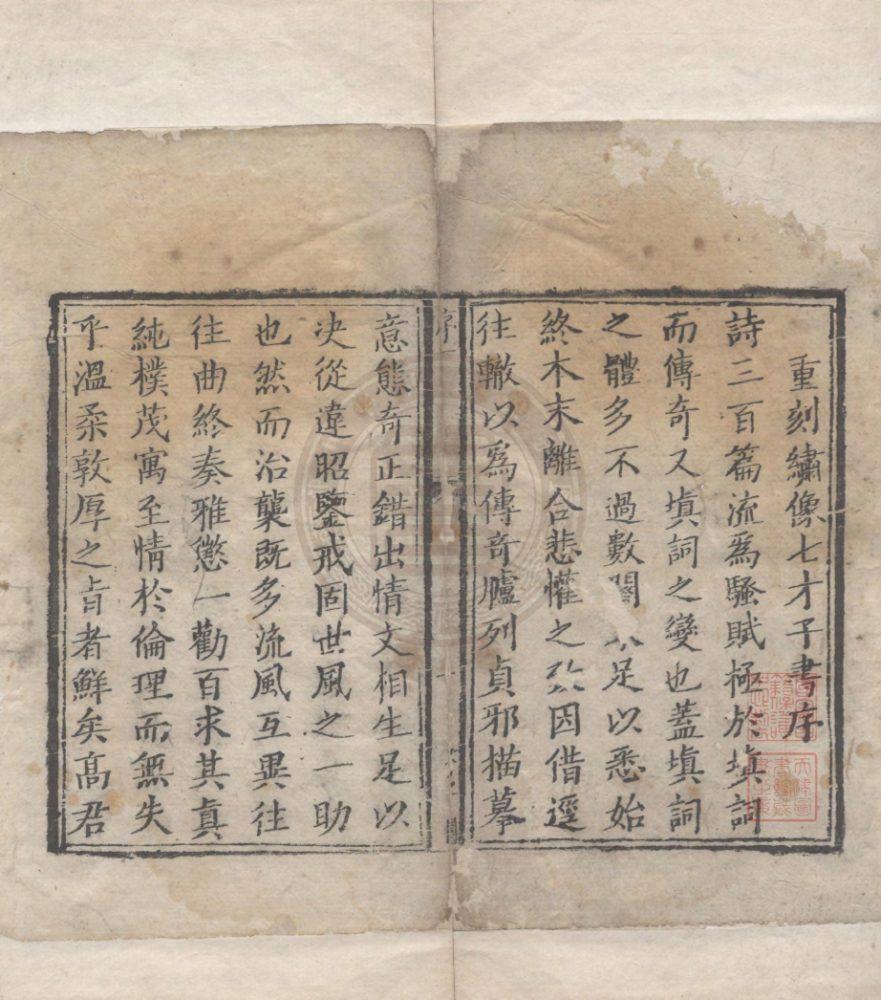 重刻繡像七才子書序
詩三百篇流爲騷賦極於填詞
而傳奇又填詞之變也蓋填詞
之體多不過數闋不足以悉始
終本末離合悲懽之致因借逕
徃轍以爲傳奇臚列貞邪描摹
意態奇正錯出情文相生足以
决從違昭鑒戒固世風之一助
也然而沿襲既多流風互異往
往曲終奏雅懲一勸百求其真
純樸茂寓至情於倫理而無失
乎溫柔敦厚之旨者鮮矣高君
序
一